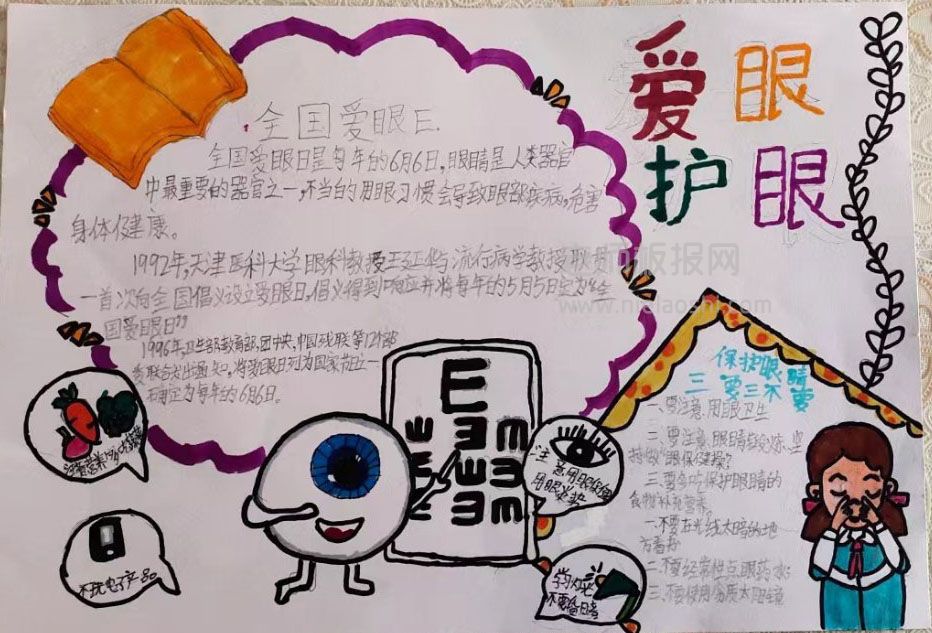 爱眼
护眼
全国爱眼日
全国爱眼日是每年的6月6日,眼睛是人类器官
中最重要的器官之一,不当的用眼习惯会导致眼部疾病,危害
身体健康。
1992年,天津医科大学眼科教授王延华与流行病学教授耿贯
一首次向全国倡议设立爱眼日,倡议得到响应并将每年的5月5日定为"全
国爱眼日"
1996年,卫生部教育部,团中央,中国残联等12个部
委联合发出通知,将爱眼日列为国家节日之一
确定为每年的6月6日。
保护眼睛
三要三不要
一、要注意用眼卫生
二、要注意眼睛
持做"眼保健操"
三、要多吃保护眼睛的
食物补充营养。
一、不要在光线太暗的地
方看书
二、不要经常性点眼药水
三、不要使用劣质太阳镜
不玩电子产品
注意用眼
E
www.